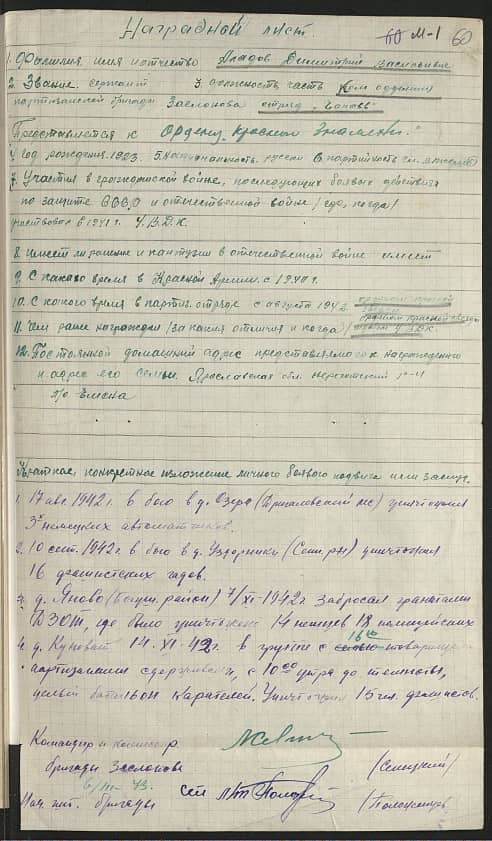 Наградной лист.
60 М-1 60
1. Фамилия имя и отчество Димитрий Васильевич
2. Звание. сержант 3. должность часть Ком отделения
партизанской бригады Заслонова отряд
Представляется к Ордену "Красное Знамение."
4. год рождения. 1923. 5. Национальность. русский 6. партийность
7. Участия в гражданской войне, последующих боевых действиях
по защите СССР и отечественной войне / где, когда/
участвовал в 1941 г.
8. имеет ли ранение и контузии в отечественной войне имеет
9. С какого время в Красной Армии. с 1940 г.
10. С какого время в партиз. отряде с августа 1942.
11. Чем ранее награжден / за какия отличия и когда/
12. Постоянной домашний адрес представляемого к награждению
и адрес его семьи. Ярославская обл.
п/о
Краткое, конкретное изложение личного боевого подвига или заслуг.
1. 17 авг. 1942 г. в бою в д. Озера уничтожил
3х немецких автоматчиков.
2. 10 сент. 1942 г. в бою в д. уничтожил
16 фашистских гадов.
3. д. район) 7/XI-1942 г. забросал гранатами
ДЗОТ, где было уничтожено 14 немцев 18 полицейских
4. д. 14. XI-42 г. в группе с 16ю товарищами
партизанами сдерживал, с 10 00 утра до темноты,
целый батальон карателей. Уничтожил 15 чел. фашистов.
Командир и комиссар
бригады Заслонова
Нач. шт. бригады